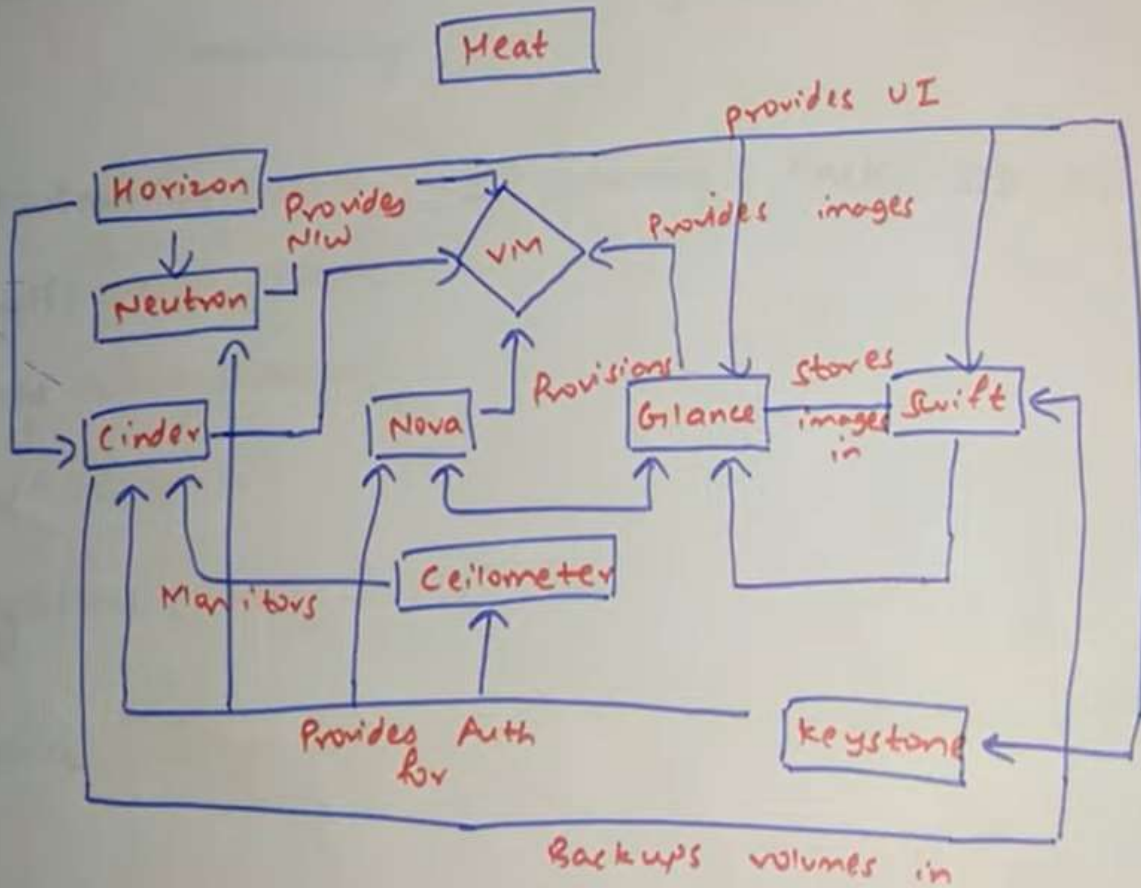 Heat
provides UI
Horizon
Provides
N/W
VM
Provides images
Neutron
Provisions
stores
images
in
Cinder
Nova
Glance
Swift
Ceilometer
Monitors
Provides Auth
for
Keystone
Backups volumes in